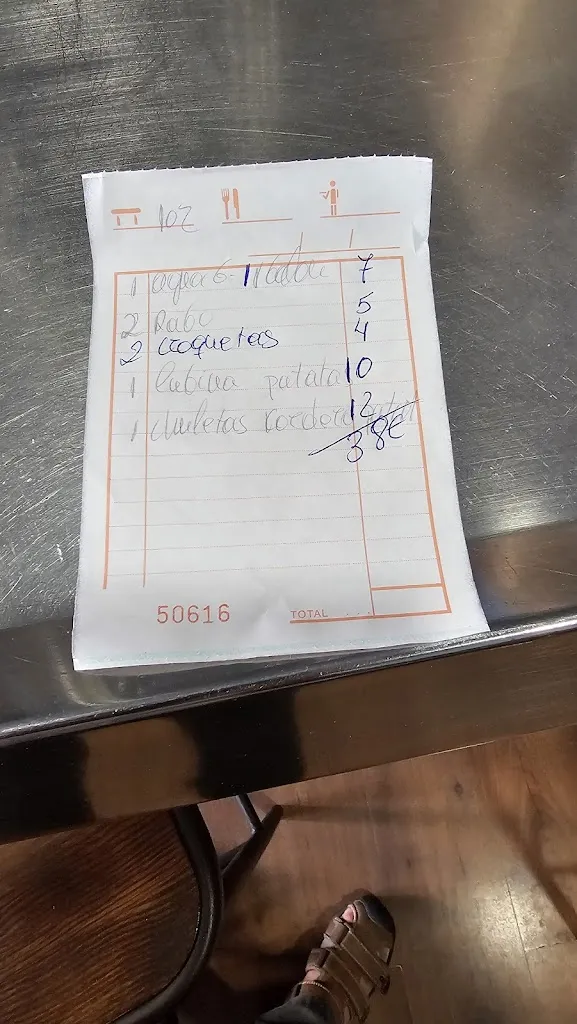 102
1 agua G. 1 7
2 Rabo 5
2 croquetas 4
1 lubina patata 10
1 chuletas cordero 12
38€
50616 TOTAL